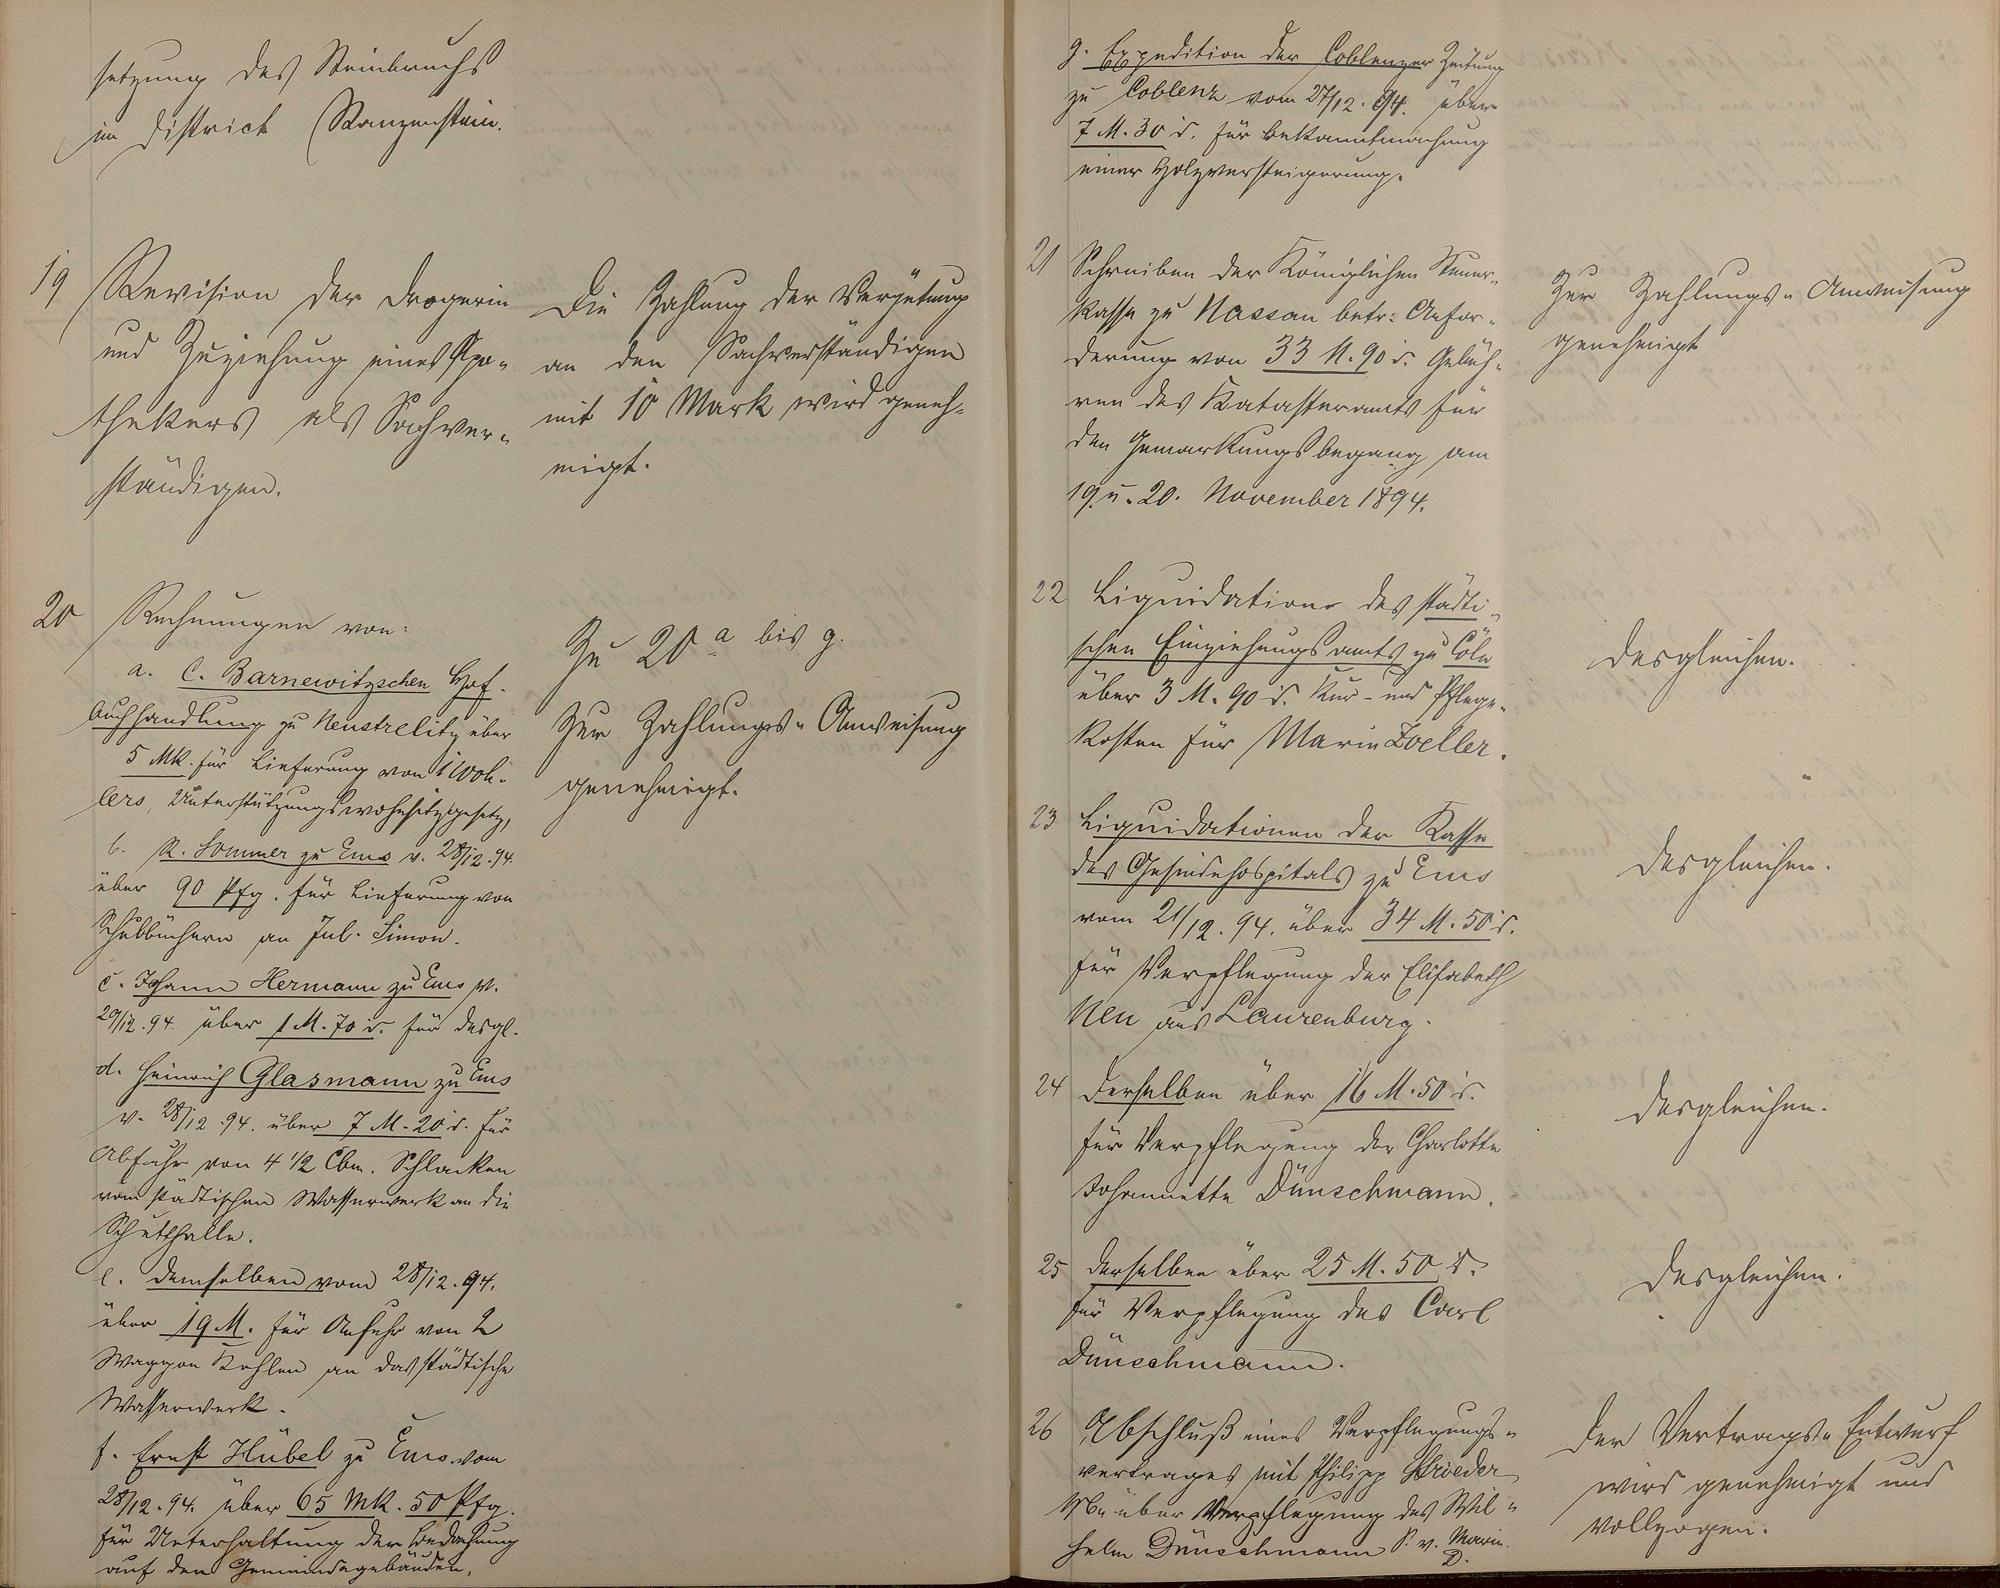 setzung des Steinbruchs
im District Ranzenstein.
19 Revision der Drogerie
und Zuziehung eines Apo-
thekers als Sachver-
ständigen.
Die Zahlung der Vergütung
an den Sachverständigen
mit 10 Mark wird geneh-
migt.
20 Rechnungen von:
a. C. Barnewitzschen Hof-
buchhandlung zu Neustrelitz über
5 Mk. für Lieferung von 1 Woh-
lers, Unterstützungswohnsitzgesetz,
b. R. Sommer zu Ems v. 28/12.94.
über 90 Pfg. für Lieferung von
Schulbüchern an Jul. Simon.
c. Johann Hermann zu Ems v.
29/12.94. über 1 M. 70 d. für desgl.
d. Heinrich Glasmann zu Ems
v. 28/12.94. über 7 M. 20 d. für
Abfuhr von 4 1/2 Cbm. Schlacken
vom städtischen Wasserwerk an die
Schutthalle.
e. demselben vom 28/12.94.
über 19 M. für Anfuhr von 2
Waggon Kohlen an das städtische
Wasserwerk.
f. Ernst Hübel zu Ems vom
28/12.94. über 65 Mk. 50 Pfg.
für Unterhaltung der Bedachung
auf den Gemeindegebäuden,
Zu 20 a bis g.
Zur Zahlungs-Anweisung
genehmigt.
g. Expedition der Coblenzer Zeitung
zu Coblenz vom 27/12.94. über
7 M. 30 d. für Bekanntmachung
einer Holzversteigerung.
21 Schreiben der Königlichen Steuer-
kasse zu Nassau betr: Anfor-
derung von 33 M. 90 d. Gebüh-
ren des Katasteramts für
den Gemarkungsbegang am
19. u. 20. November 1894.
Zur Zahlungs-Anweisung
genehmigt
22 Liquidation des städti-
schen Einziehungsamts zu Cöln
über 3 M. 90 d. Kur- und Pflege-
kosten für Marie Zoeller.
desgleichen.
23 Liquidationen der Kasse
des Gesindehospitals zu Ems
vom 21/12.94. über 34 M. 50 d.
für Verpflegung der Elisabeth
Neu aus Laurenburg.
desgleichen.
24 derselben über 16 M. 50 d.
für Verpflegung der Charlotte
Johannette Dünschmann.
desgleichen.
25 derselben über 25 M. 50 d.
für Verpflegung des Carl
Dünschmann.
desgleichen.
26 Abschluß eines Verpflegungs-
vertrages mit Philipp
über Verpflegung des Wil-
helm Dünschmann S. v. Marie
D.
der Vertrags-Entwurf
wird genehmigt und
vollzogen.